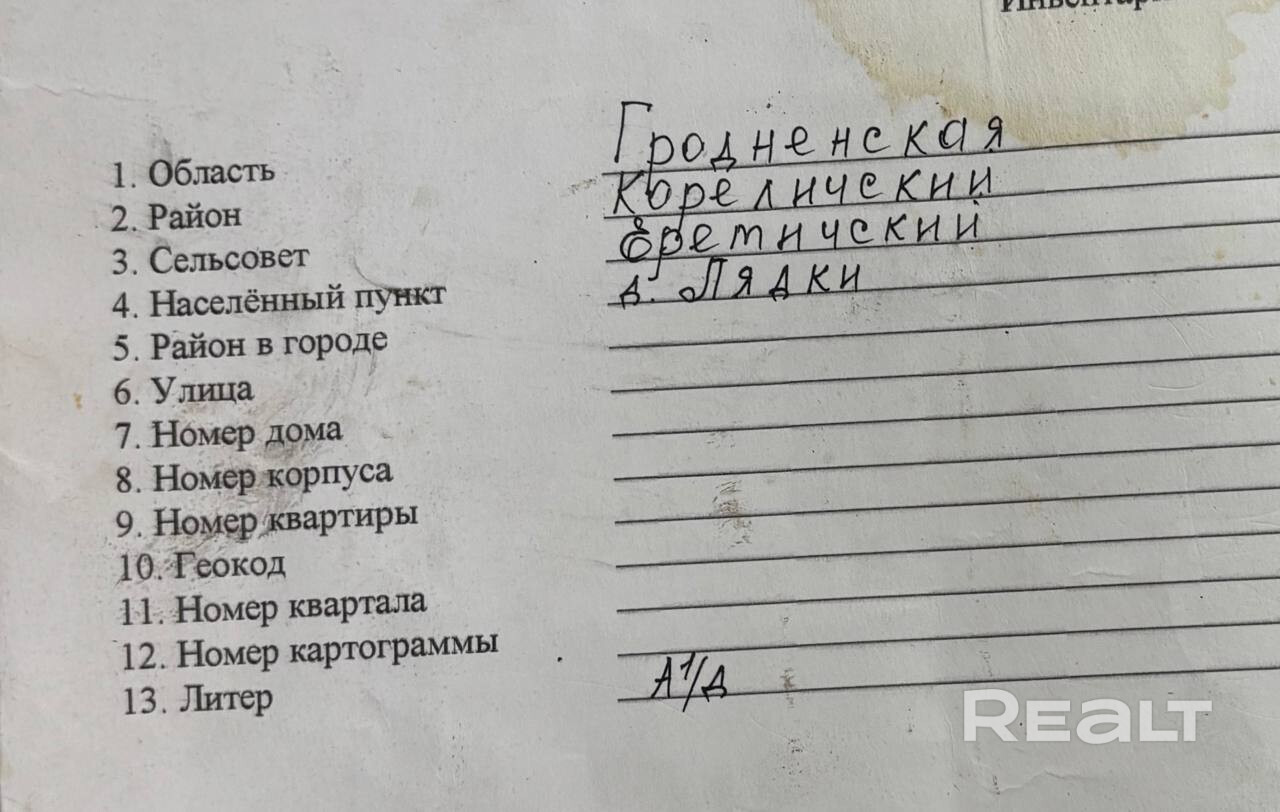 1. Область Гродненская
2. Район Кореличский
3. Сельсовет Еремичский
4. Населённый пункт д. Лядки
5. Район в городе
6. Улица
7. Номер дома
8. Номер корпуса
9. Номер квартиры
10. Геокод
11. Номер квартала
12. Номер картограммы
13. Литер А1/д
REALT